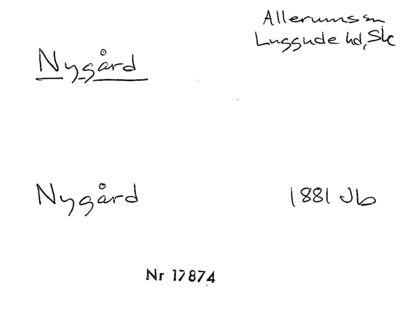 Allerums sn
Luggude hd, Sk
Nygård
Nygård 1881 Jb
Nr 17874